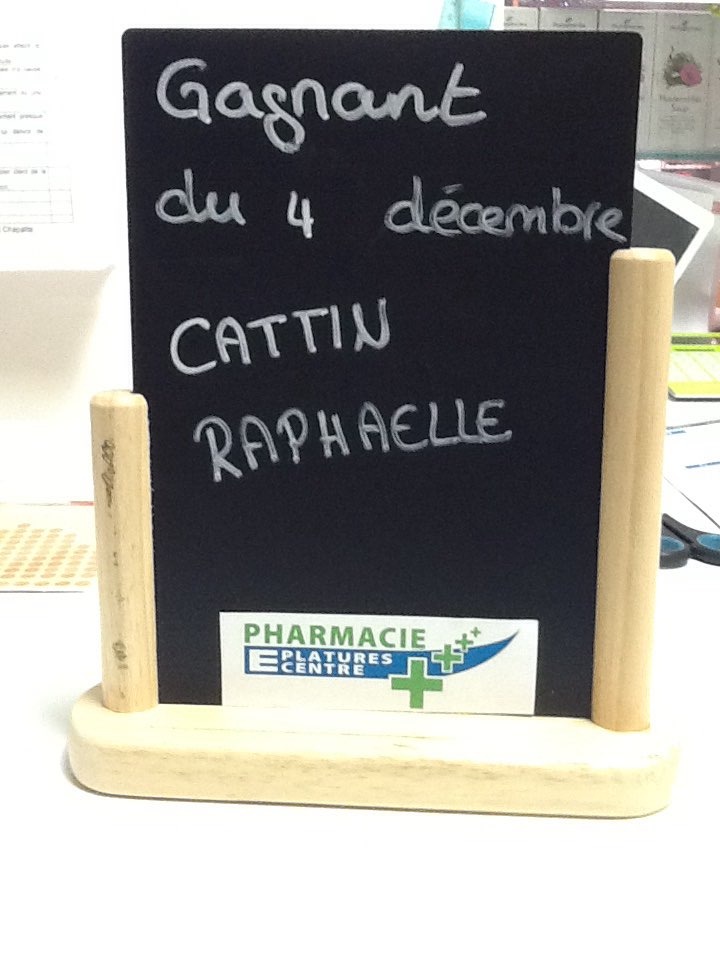 Gagnant
du 4 décembre
CATTIN
RAPHAELLE
PHARMACIE
EPLATURES
CENTRE